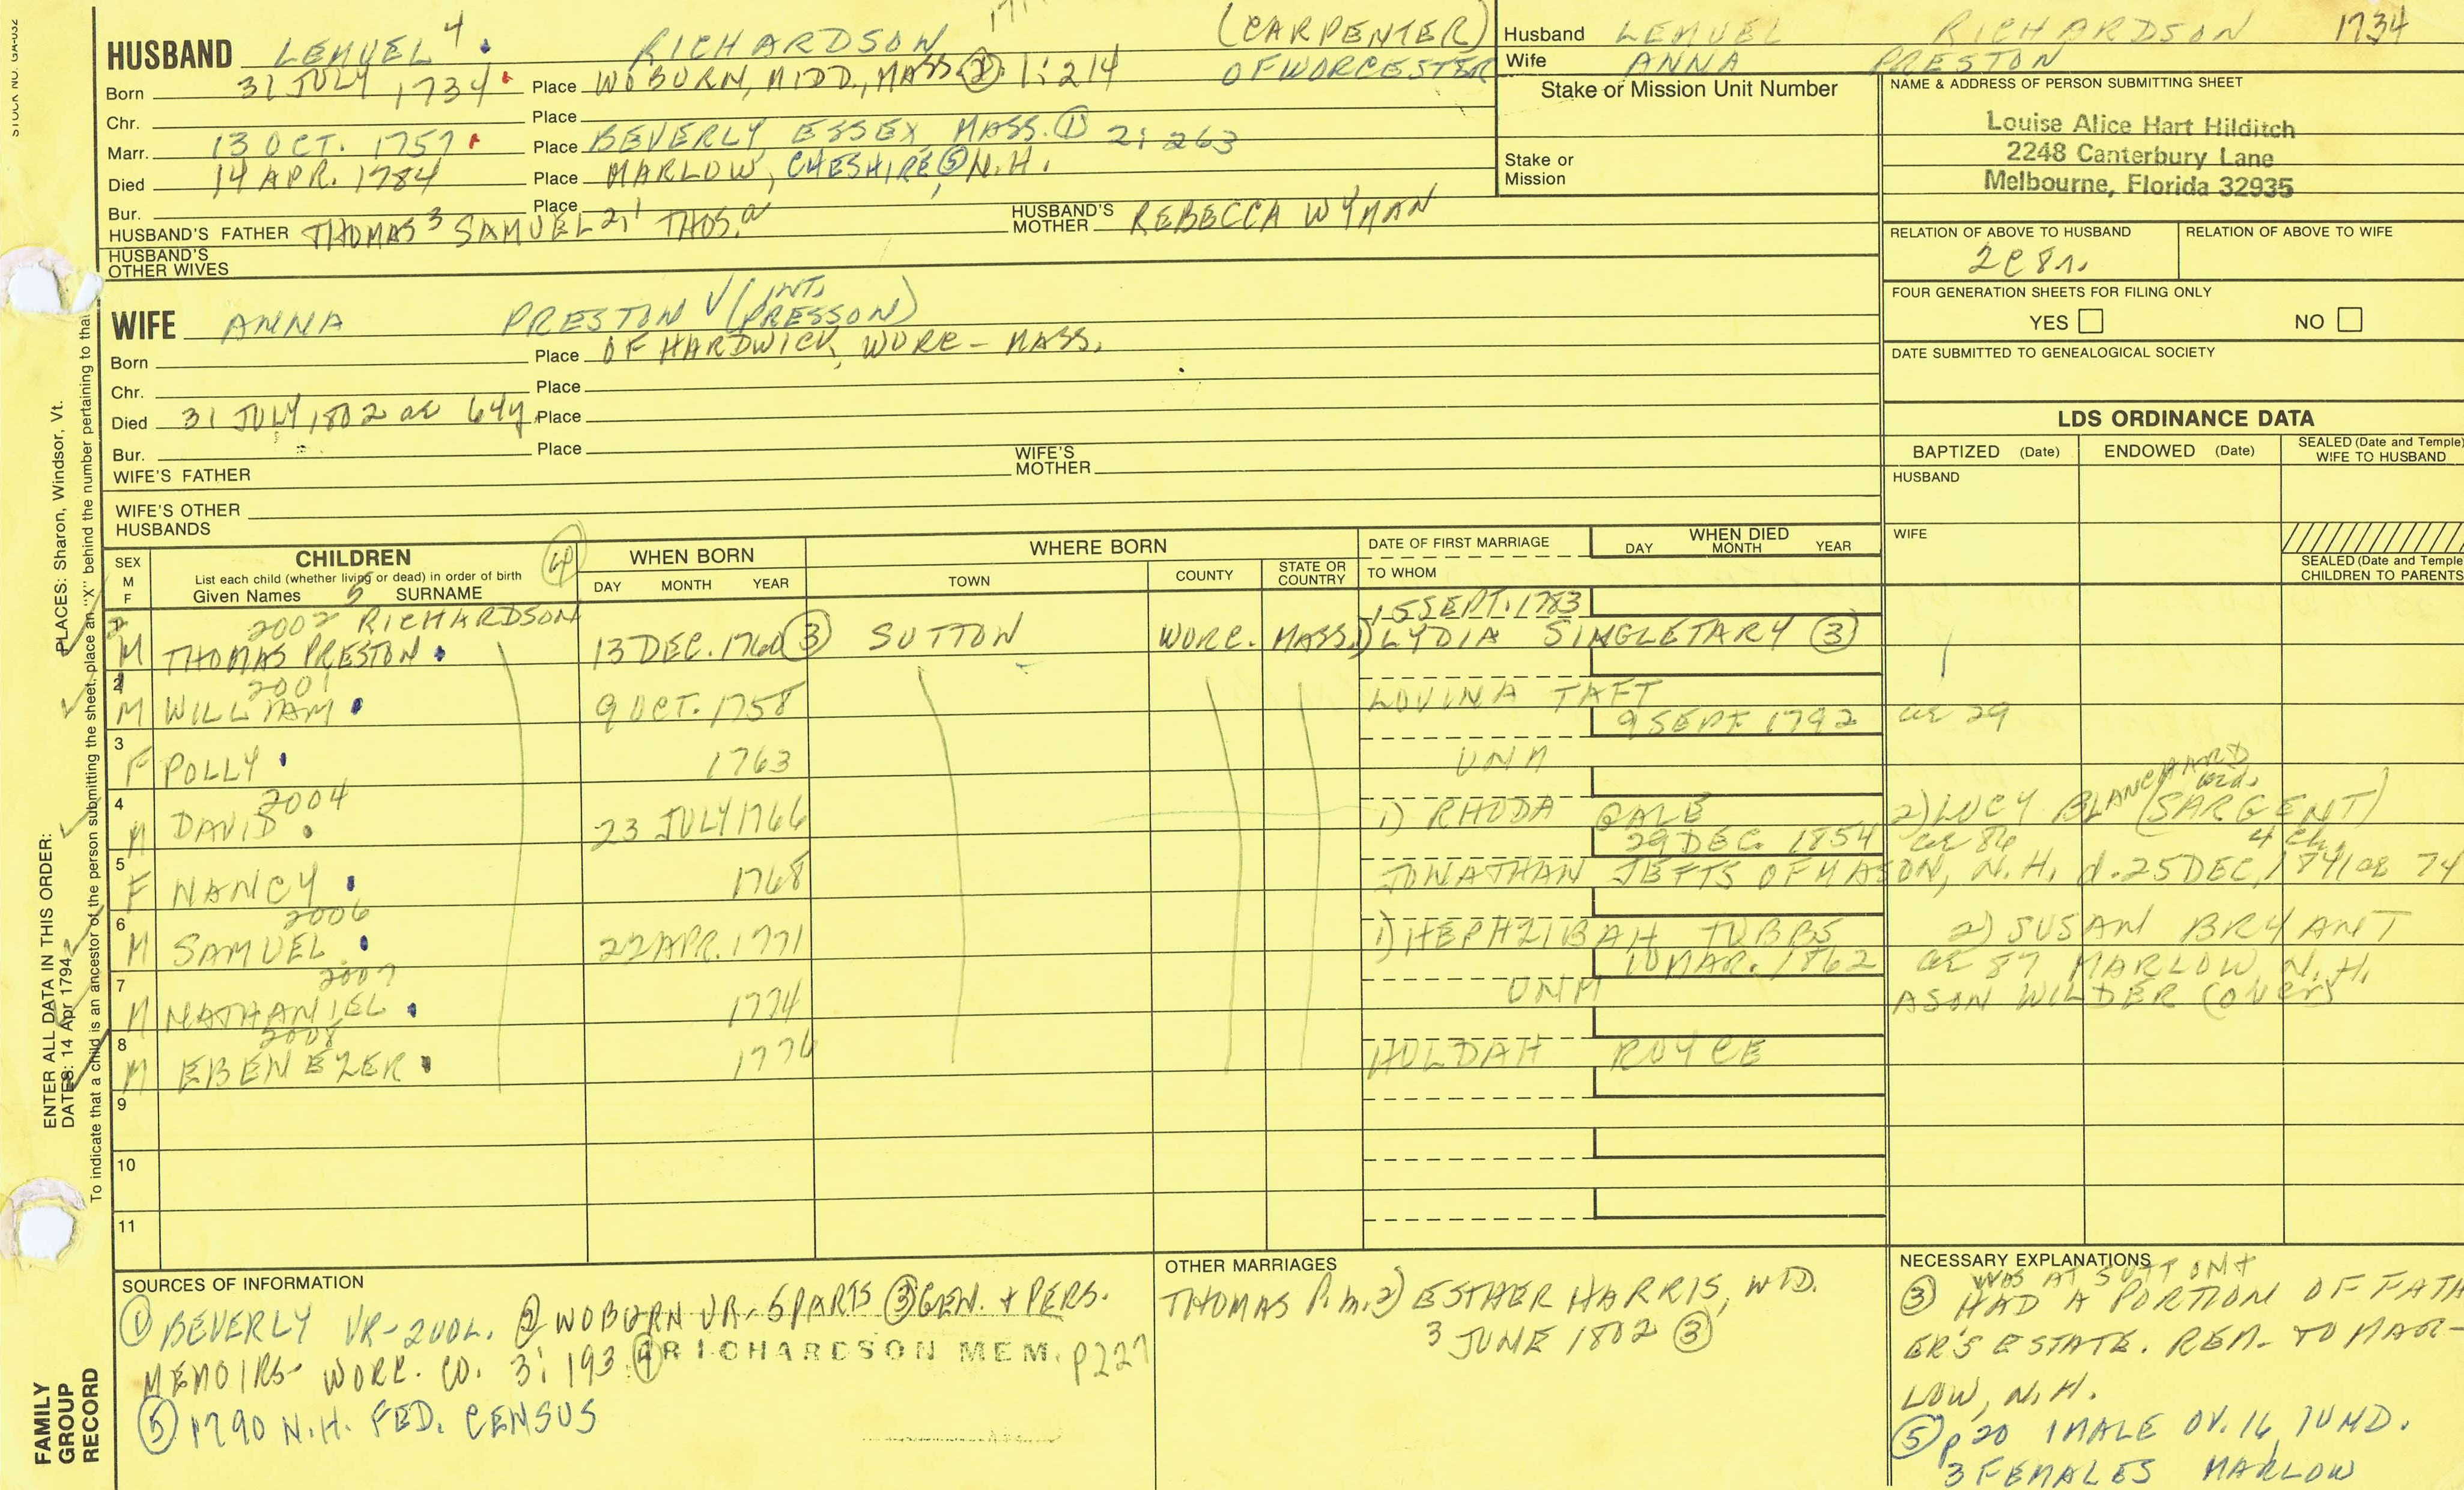 STOCK NO. GGA-032
HUSBAND LEMUEL 4 RICHARDSON (CARPENTER)
Born 31 JULY 1734 Place WOBURN, MIDD., MASS. ② 1:214 OF WORCESTER
Chr. Place
Marr. 13 OCT. 1757 Place BEVERLY, ESSEX, MASS. ① 2:263
Died 14 APR. 1784 Place MARLOW, CHESHIRE ⑤ N.H.
Bur. Place
HUSBAND'S FATHER THOMAS 3 SAMUEL 2, THOS. HUSBAND'S MOTHER REBECCA WYMAN
HUSBAND'S OTHER WIVES
Husband LEMUEL RICHARDSON 1734
Wife ANNA PRESTON
Stake or Mission Unit Number
Stake or Mission
NAME & ADDRESS OF PERSON SUBMITTING SHEET
Louise Alice Hart Hilditch
2248 Canterbury Lane
Melbourne, Florida 32935
RELATION OF ABOVE TO HUSBAND RELATION OF ABOVE TO WIFE
2C8r.
FOUR GENERATION SHEETS FOR FILING ONLY
YES NO
DATE SUBMITTED TO GENEALOGICAL SOCIETY
WIFE ANNA PRESTON √ (INT. PRESSON)
Born Place OF HARDWICK, WORC- MASS.
Chr. Place
Died 31 JULY 1802 ae 64y Place
Bur. Place
WIFE'S FATHER WIFE'S MOTHER
WIFE'S OTHER HUSBANDS
LDS ORDINANCE DATA
BAPTIZED (Date) ENDOWED (Date) SEALED (Date and Temple) WIFE TO HUSBAND
HUSBAND
WIFE
SEALED (Date and Temple CHILDREN TO PARENTS
SEX M F CHILDREN ④ WHEN BORN WHERE BORN DATE OF FIRST MARRIAGE WHEN DIED
List each child (whether living or dead) in order of birth
Given Names 5 SURNAME DAY MONTH YEAR TOWN COUNTY STATE OR COUNTRY TO WHOM DAY MONTH YEAR
2002 RICHARDSON 15 SEPT. 1783
M THOMAS PRESTON 13 DEC. 1760 ③ SUTTON WORC. MASS. 1) LYDIA SINGLETARY ③
2001
M WILLIAM 9 OCT. 1758 LOVINA TAFT
3 9 SEPT 1792 ae 29
F POLLY 1763 UNM
4 2004
M DAVID 23 JULY 1766 1) RHODA GALE 2) LUCY BLANCHARD wid. (SARGENT)
5 29 DEC. 1854 ae 86 4 ch.
F NANCY 1768 JONATHAN JEFTS OF MASON, N.H. d. 25 DEC, 1841 ae 74
6 2006
M SAMUEL 22 APR. 1771 1) HEPHZIBAH TUBBS 2) SUSAN BRYANT
7 2007 10 MAR. 1862 ae 87 MARLOW, N.H.
M NATHANIEL 1774 UNM ASON WILDER (over)
8 2008
M EBENEZER 1776 HULDAH ROYCE
9
10
11
SOURCES OF INFORMATION
① BEVERLY VR-2VOL. ② WOBURN VR-5PARTS ③ GEN. + PERS.
MEMOIRS- WORC. CO. 3:193 ④ RICHARDSON MEM. P227
⑤ 1790 N.H. FED. CENSUS
OTHER MARRIAGES
THOMAS P. m. 2) ESTHER HARRIS, WID.
3 JUNE 1802 ③
NECESSARY EXPLANATIONS
WAS AT SUTTON +
③ HAD A PORTION OF FATH
ER'S ESTATE. REM- TO MAR-
LOW, N.H.
⑤ p 20 1 MALE OV. 16, 1 UND.
3 FEMALES MARLOW
PLACES: Sharon, Windsor, Vt.
ENTER ALL DATA IN THIS ORDER:
DATES: 14 Apr 1794
To indicate that a child is an ancestor of the person submitting the sheet, place an "X" behind the number pertaining to that
FAMILY
GROUP
RECORD